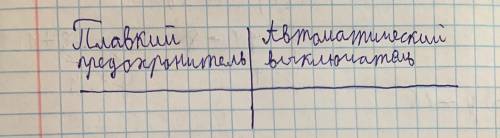 Плавкий
предохронитель
Автоматический
выключатель